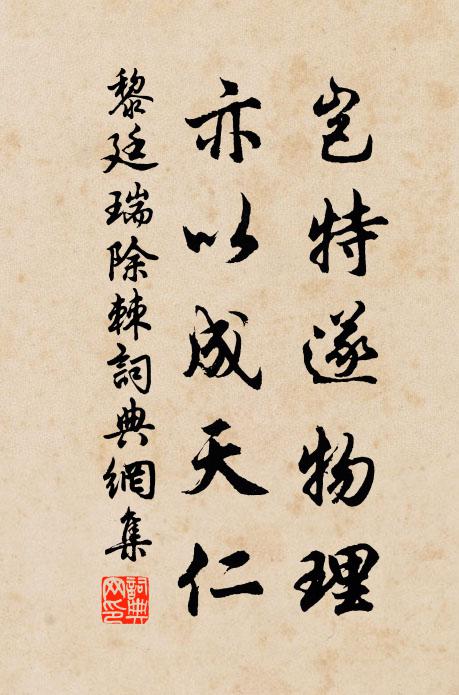 豈特遂物理
亦以成天仁
黎廷瑞除棘詞典網集
詞典网印